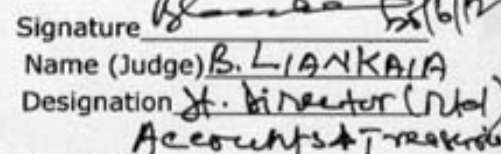 Signature
Name (Judge) B. LIANKAIA
Designation Jt. Director (Ntd)
Accounts & Treasuries